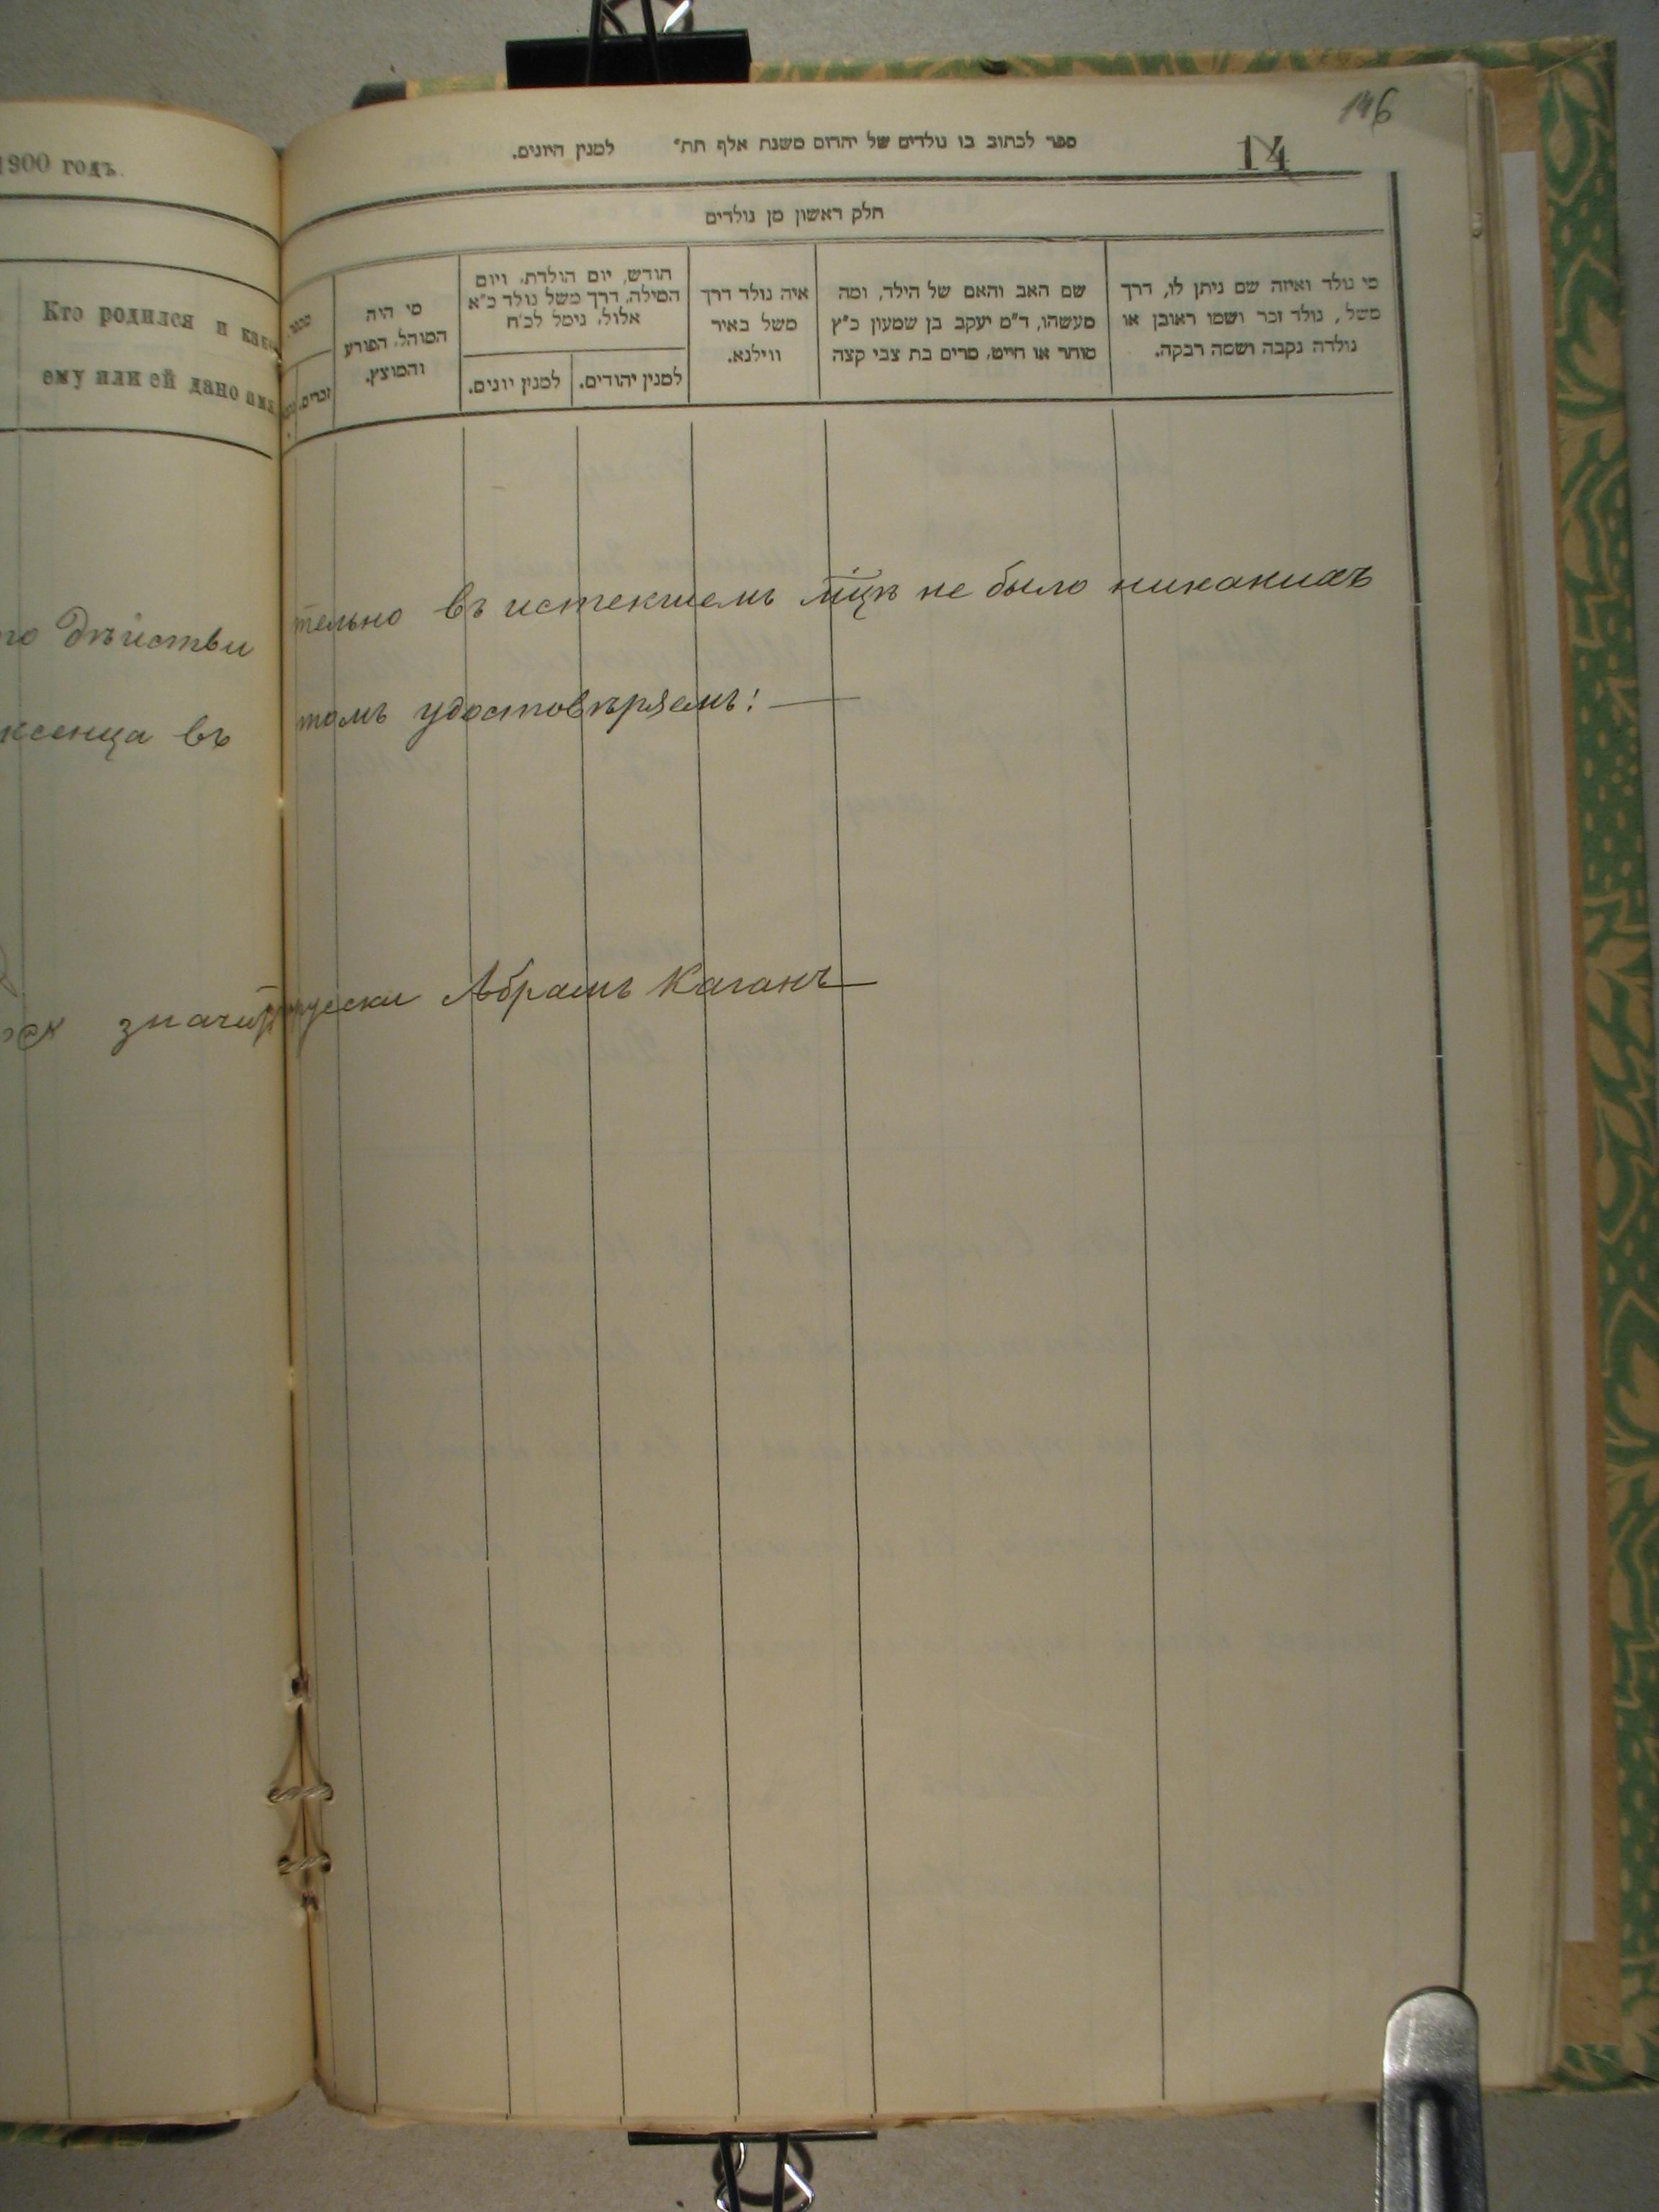 146
14
1900 годъ.
ספר לכתוב בו נולדים של יהדום משנת אלף תת״ למנין היונים.
חלק ראשון מן נולדים
Кто родился и како
ему или ей дано имя
מספר
זכרים.
מי היה
המוהל, הפורע
והמוצץ.
חודש, יום הולדת, ויום
המילה, דרך משל נולד כ״א
אלול, נימל לכ״ח
למנין יונים.
למנין יהודים.
איה נולד דרך
משל באיר
ווילנא.
שם האב והאם של הילד, ומה
מעשהו, ד״מ יעקב בן שמעון כ״ץ
סוחר או חייט, מרים בת צבי קצה
מי נולד ואיזה שם ניתן לו, דרך
משל, נולד זכר ושמו ראובן או
נולדה נקבה ושמה רבקה.
го действительно въ истекшемъ мцѣ не было никакихъ
ксенца въ томъ удостовѣряемъ! —
значитъ русски Абрамъ Каганъ